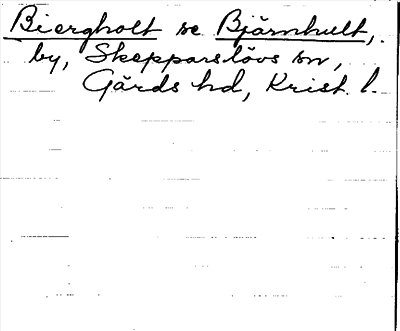 Biergholt se Bjärnhult,
by, Skepparslövs sn,
Gärds hd, Krist. l.